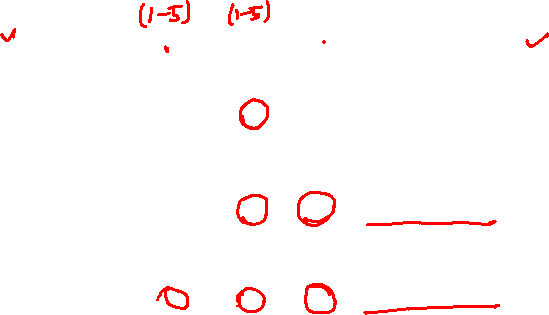 (1-5) (1-5)